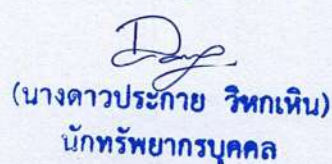 (นางดาวประกาย วิหกเหิน)
นักทรัพยากรบุคคล